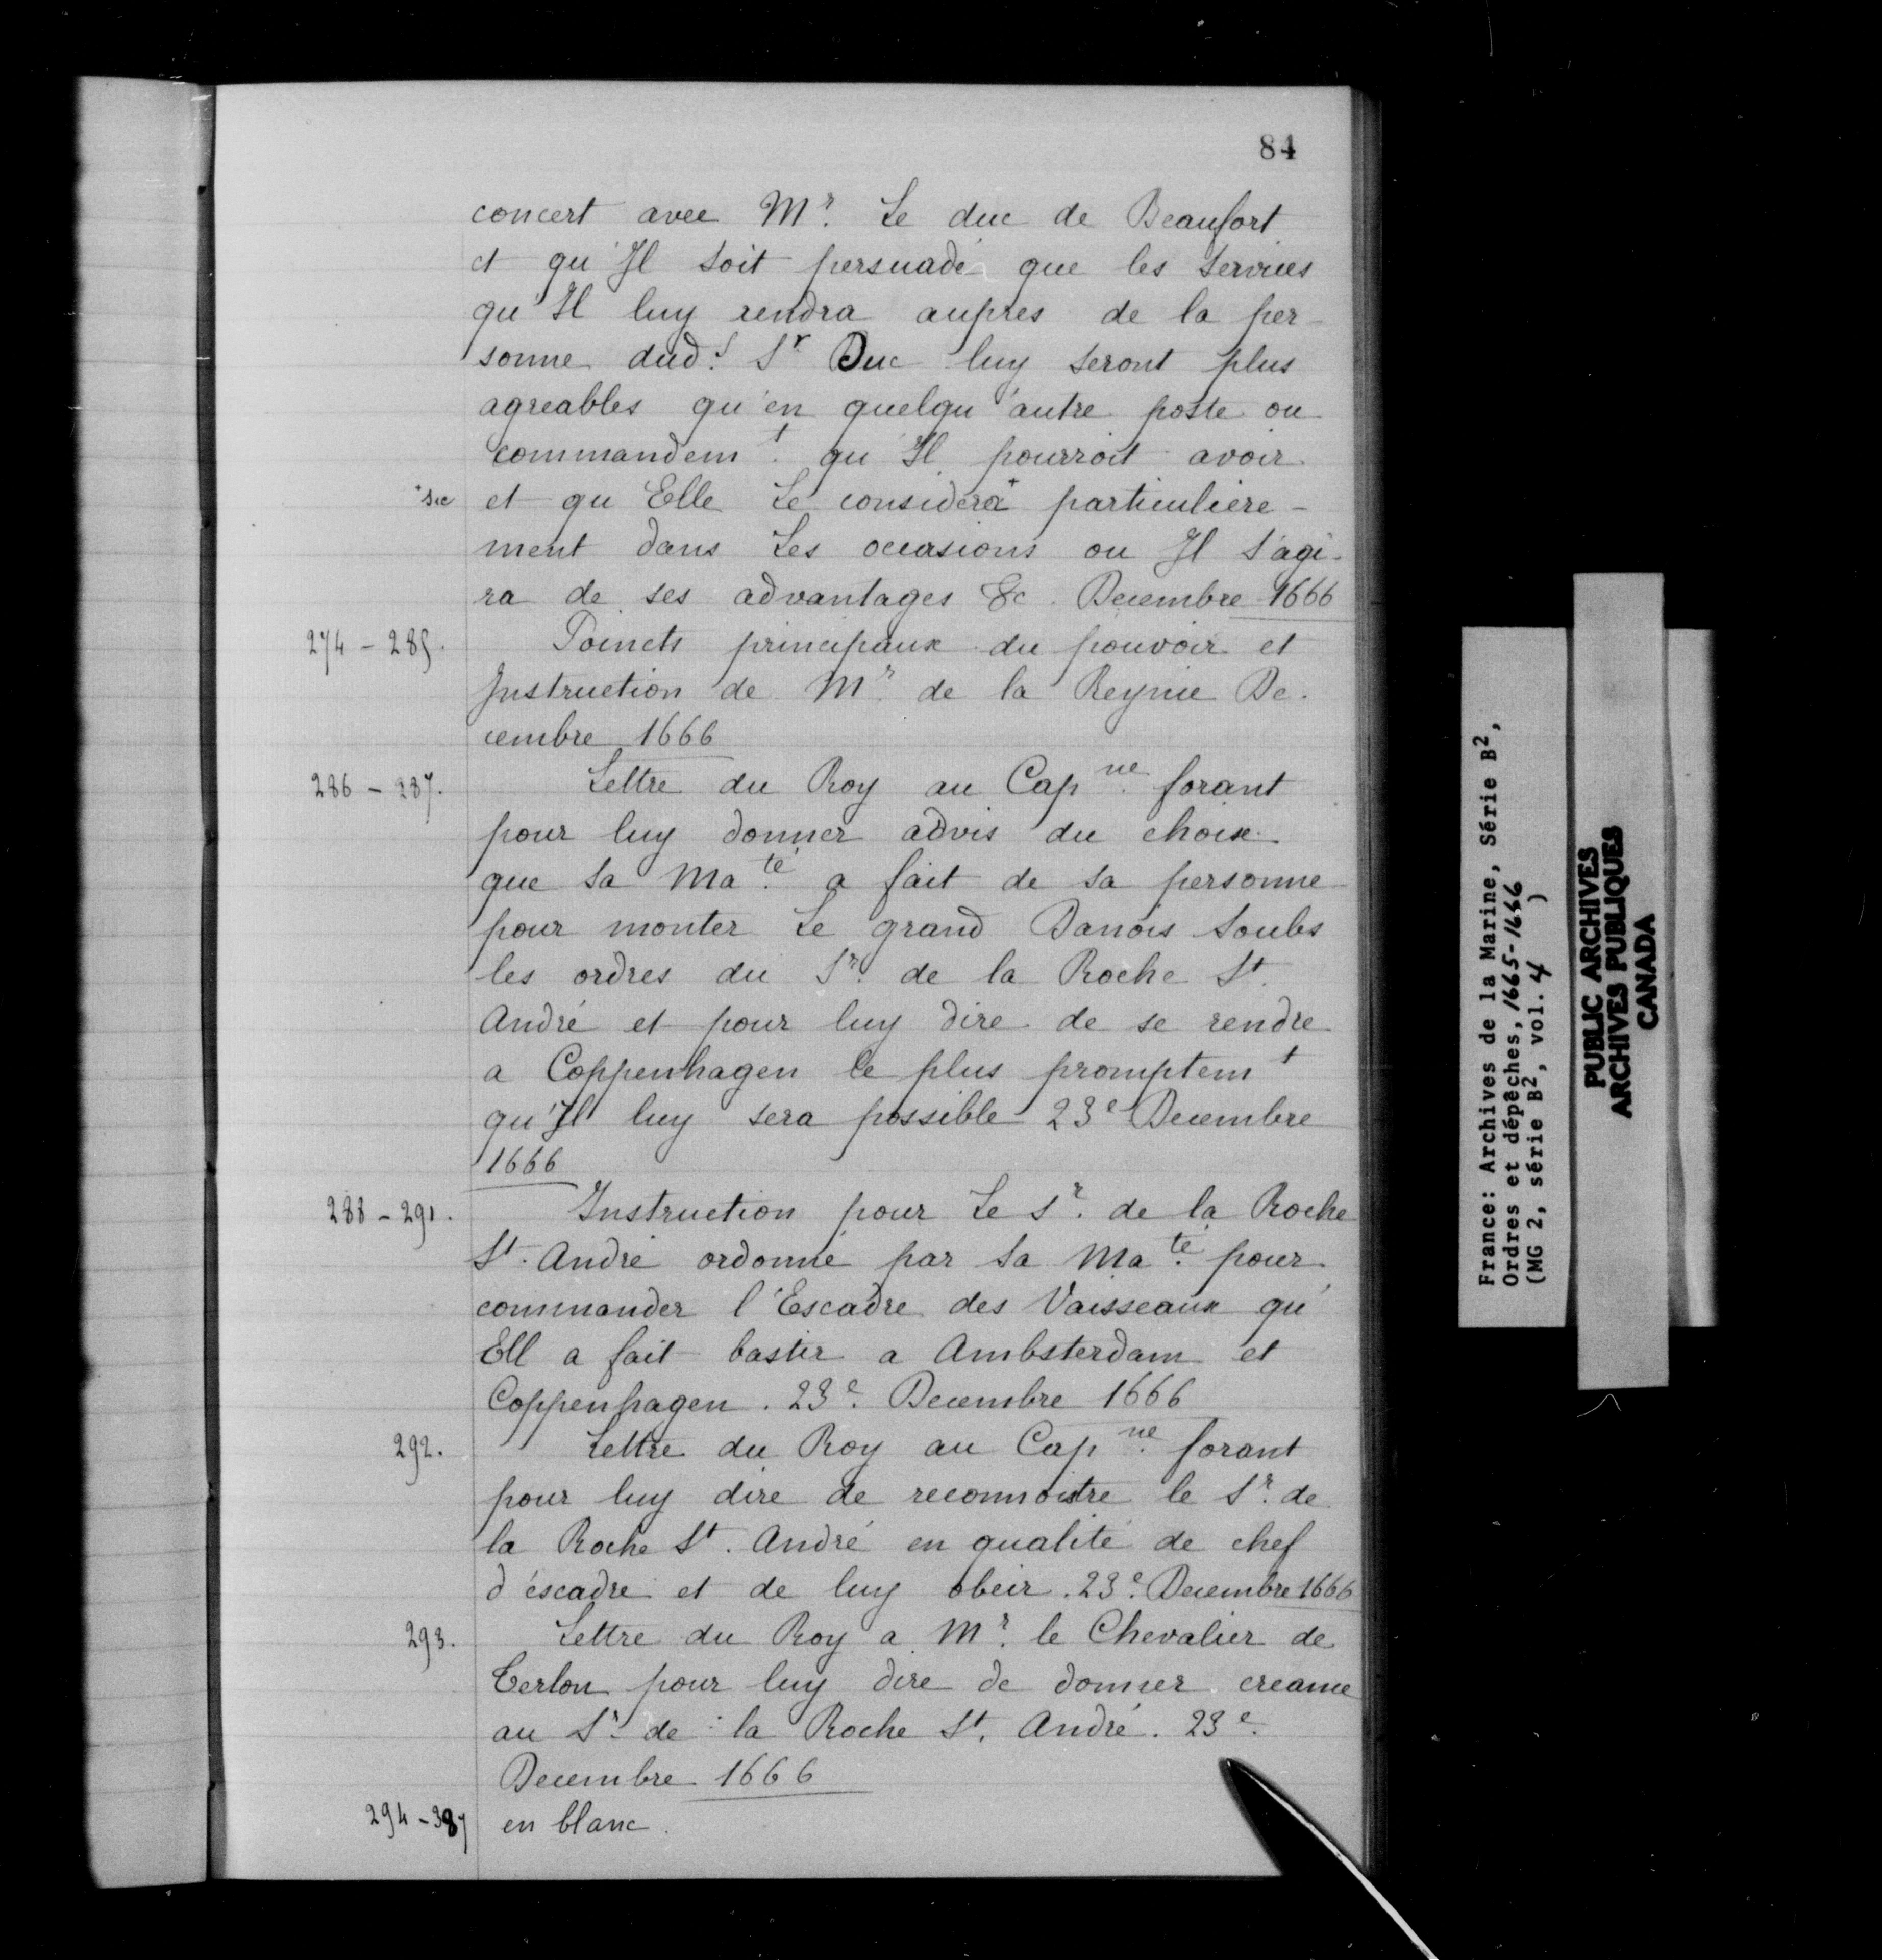 84
concert avec Mr. Le duc de Beaufort
et qu'Il soit persuadé que les services
qu'Il luy rendra aupres de la per-
sonne dud. Sr Duc luy seront plus
agreables qu'en quelqu'autre poste ou
commandemt. qu'Il pourroit avoir
*sic et qu Elle Le considera* particuliere-
ment dans Les occasions ou Il s'agi-
ra de ses advantages &c. Decembre 1666
274-285. Poincts principaux du pouvoir et
Instruction de Mr. de la Reynie De-
cembre 1666
286-287. Lettre du Roy au Capne. forant
pour luy donner advis du choix
que Sa Mate. a fait de sa personne
pour monter Le grand Danois soubs
les ordres du Sr. de la Roche St.
André et pour luy dire de se rendre
a Coppenhagen le plus promptemt
qu'Il luy sera possible 23e Decembre
1666
288-291. Instruction pour Le Sr. de la Roche
St. André ordonné par Sa Mate. pour
commander l'Escadre des Vaisseaux qu'
Ell a fait bastir a Ambsterdam et
Coppenhagen. 23e. Decembre 1666
292. Lettre du Roy au Capne. forant
pour luy dire de reconnoistre le Sr. de
la Roche St. André en qualité de chef
d'éscadre et de luy obeir. 23e. Decembre 1666
293. Lettre du Roy a Mr. le Chevalier de
Terlon pour luy dire de donner creance
au Sr. de la Roche St. André. 23e.
Decembre 1666
294-387 en blanc.
France: Archives de la Marine, Série B2,
Ordres et dépêches, 1665-1666
(MG 2, série B2, vol. 4 )
PUBLIC ARCHIVES
ARCHIVES PUBLIQUES
CANADA